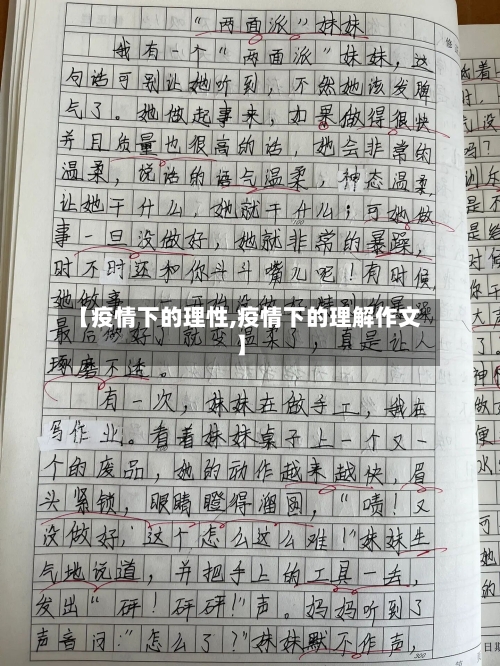 “两面派”妹妹
我有一个“两面派”妹妹，这
句话可别让她听到，不然她该发脾
气了。她做起事来，如果做得很快
并且质量也很高的话，她会非常的
温柔，说话的语气温柔，神态温柔，
让她干什么，她就干什么；可她做
事一旦没做好，她就非常的暴躁，
时不时还和你斗斗嘴儿呢！有时候，
她做事
【疫情下的理性,疫情下的理解作文
】
最后做好了就变温柔了，真是让人
琢磨不透。
有一次，妹妹在做手工，我在
写作业。看着妹妹桌子上一个又一
个的废品，她的动作越来越快，眉
头紧锁，眼睛瞪得溜圆，“啧！又
没做好，这个怎么这么难！”妹妹生
气地说道，并把手上的工具一丢，
发出“砰！砰砰！”声。妈妈听到了
声音问：“怎么了？”妹妹默不作声，
300